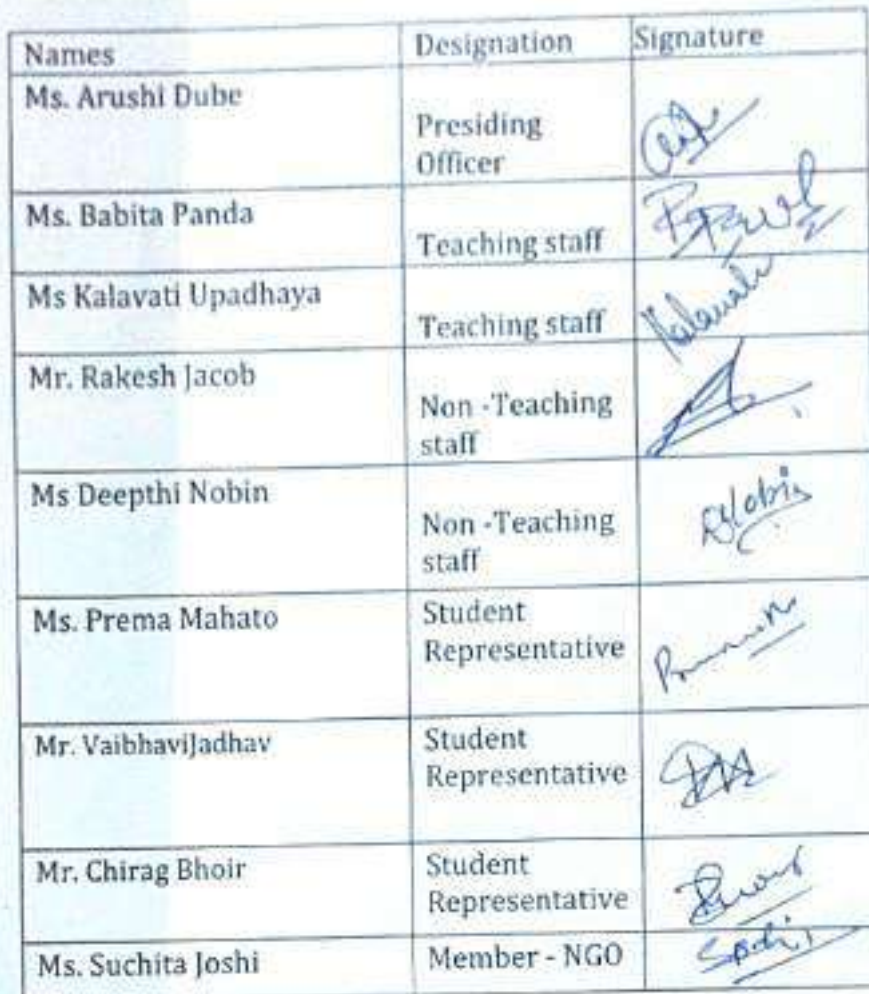 Names Designation Signature
Ms. Arushi Dube
Presiding
Officer
Ms. Babita Panda
Teaching staff
Ms Kalavati Upadhaya
Teaching staff Kalavati
Mr. Rakesh Jacob
Non -Teaching
staff
Ms Deepthi Nobin
Non -Teaching
staff
Ms. Prema Mahato Student
Representative
Mr. VaibhaviJadhav Student
Representative
Mr. Chirag Bhoir Student
Representative
Ms. Suchita Joshi Member - NGO